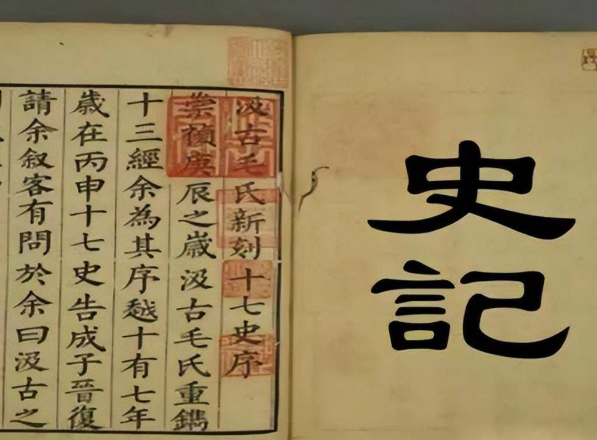 史記
汲古毛氏新刻十七史序
崇禎庚辰之歲汲古毛氏重鐫
十三經余為其序越十有七年
歲在丙申十七史告成子晉復
請余叙客有問於余曰汲古之